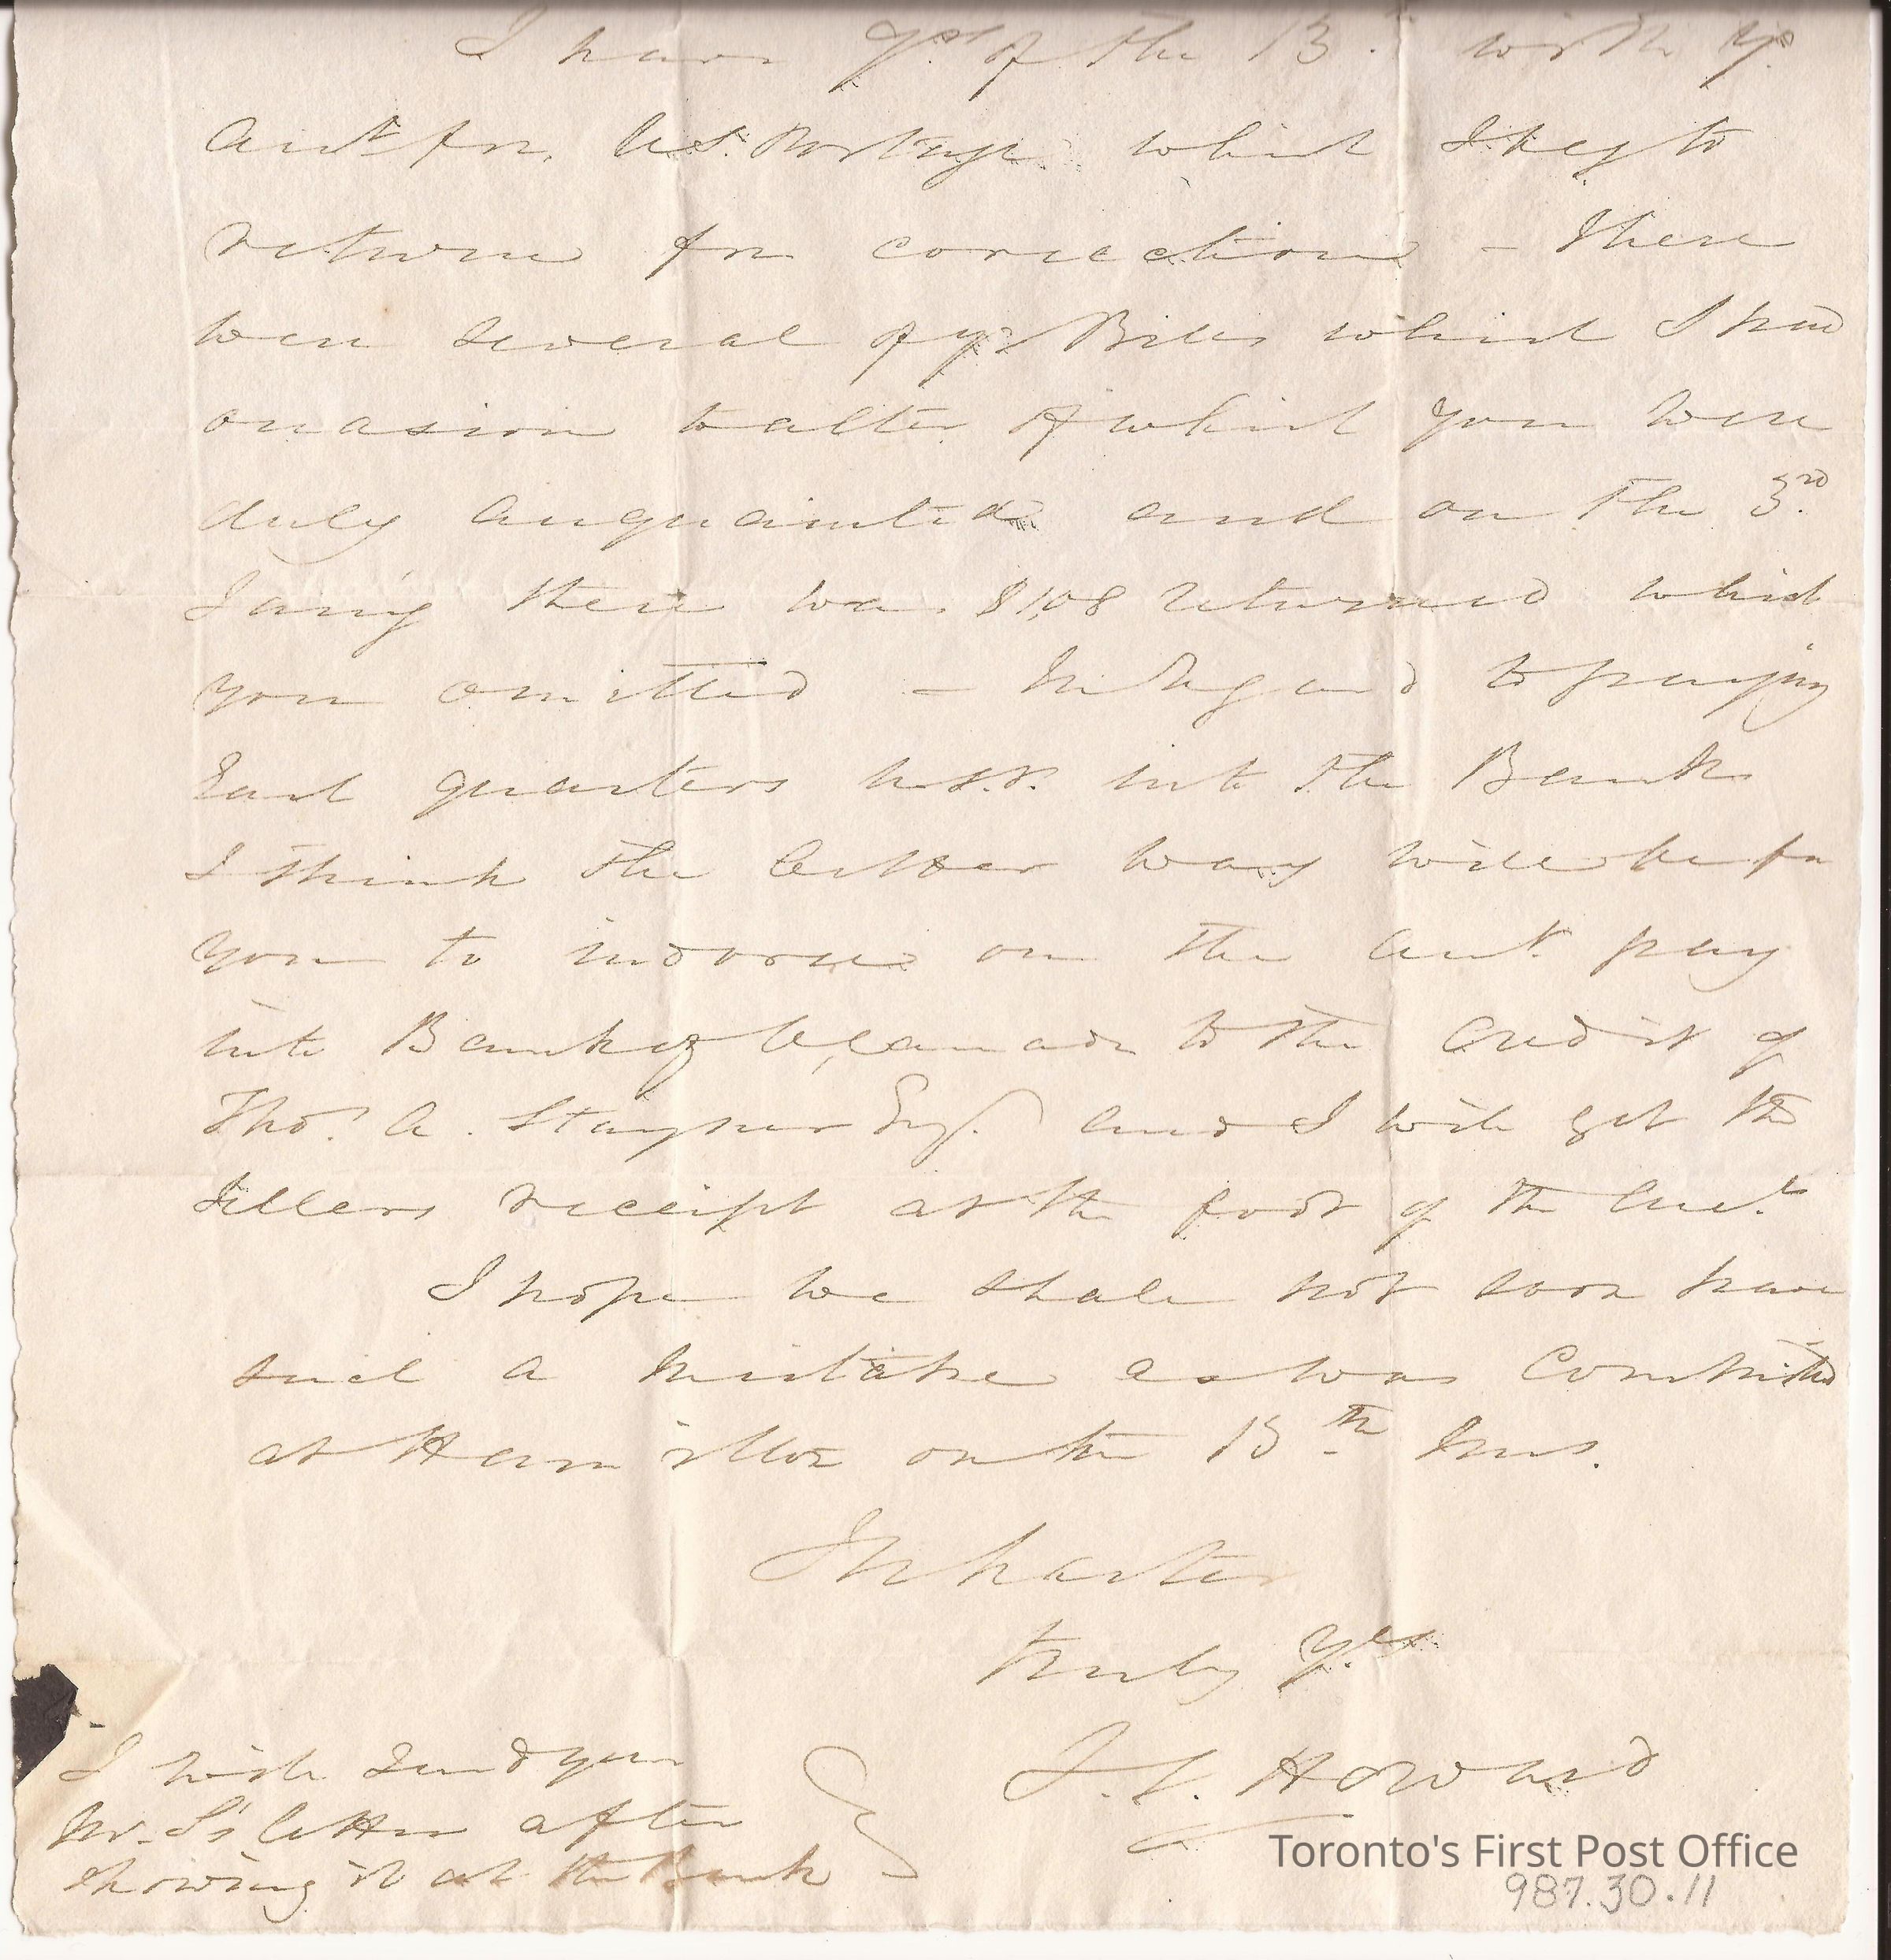 I have Yrs of the 13th with Yr
Acct for U.S. Postage which I beg to
return for correction - There
were several of yr Bills which I had
occasion to alter of which you were
duly acquainted and on the 3rd
Jany there was $1,08 returned which
you omitted - In regard to paying
Each quarters into the Bank
I think the better way will be for
you to indorse on the acct. pay
into Bank of U, Canada to the Credit of
Thos. A. Stayner Esq. and I will get the
Tellers receipt at the foot of the Acct.
I hope we shall not soon have
such a mistake as was Committed
at Hamilton on the 13th Ins.
In haste
truly Yrs
J. S. Howard
I will send you
Mr. S's letter after
showing it at the Bank
Toronto's First Post Office
987.30.11